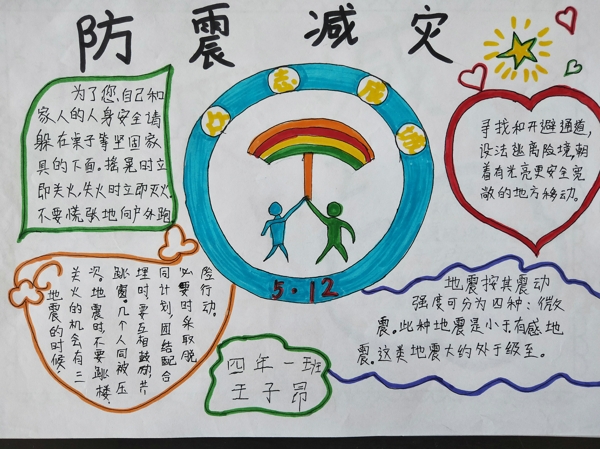 防震减灾
众志成城
为了您自己和
家人的人身安全请
躲在桌子等坚固家
具的下面。摇晃时立
即关火,失火时立即灭火
不要慌张地向户外跑
寻找和开避通道,
设法逃离险境,朝
着有光亮更安全宽
敞的地方移动。
5·12
地震的时候
关火的机会有三
次,地震时不要跳楼、
跳窗。几个人同被压
埋时,要互相鼓励,共
同计划,团结配合
必要时采取脱
险行动。
地震按其震动
强度可分为四种:微
震。此种地震是小于有感地
震。这类地震大约处于级至。
四年一班
王子昂